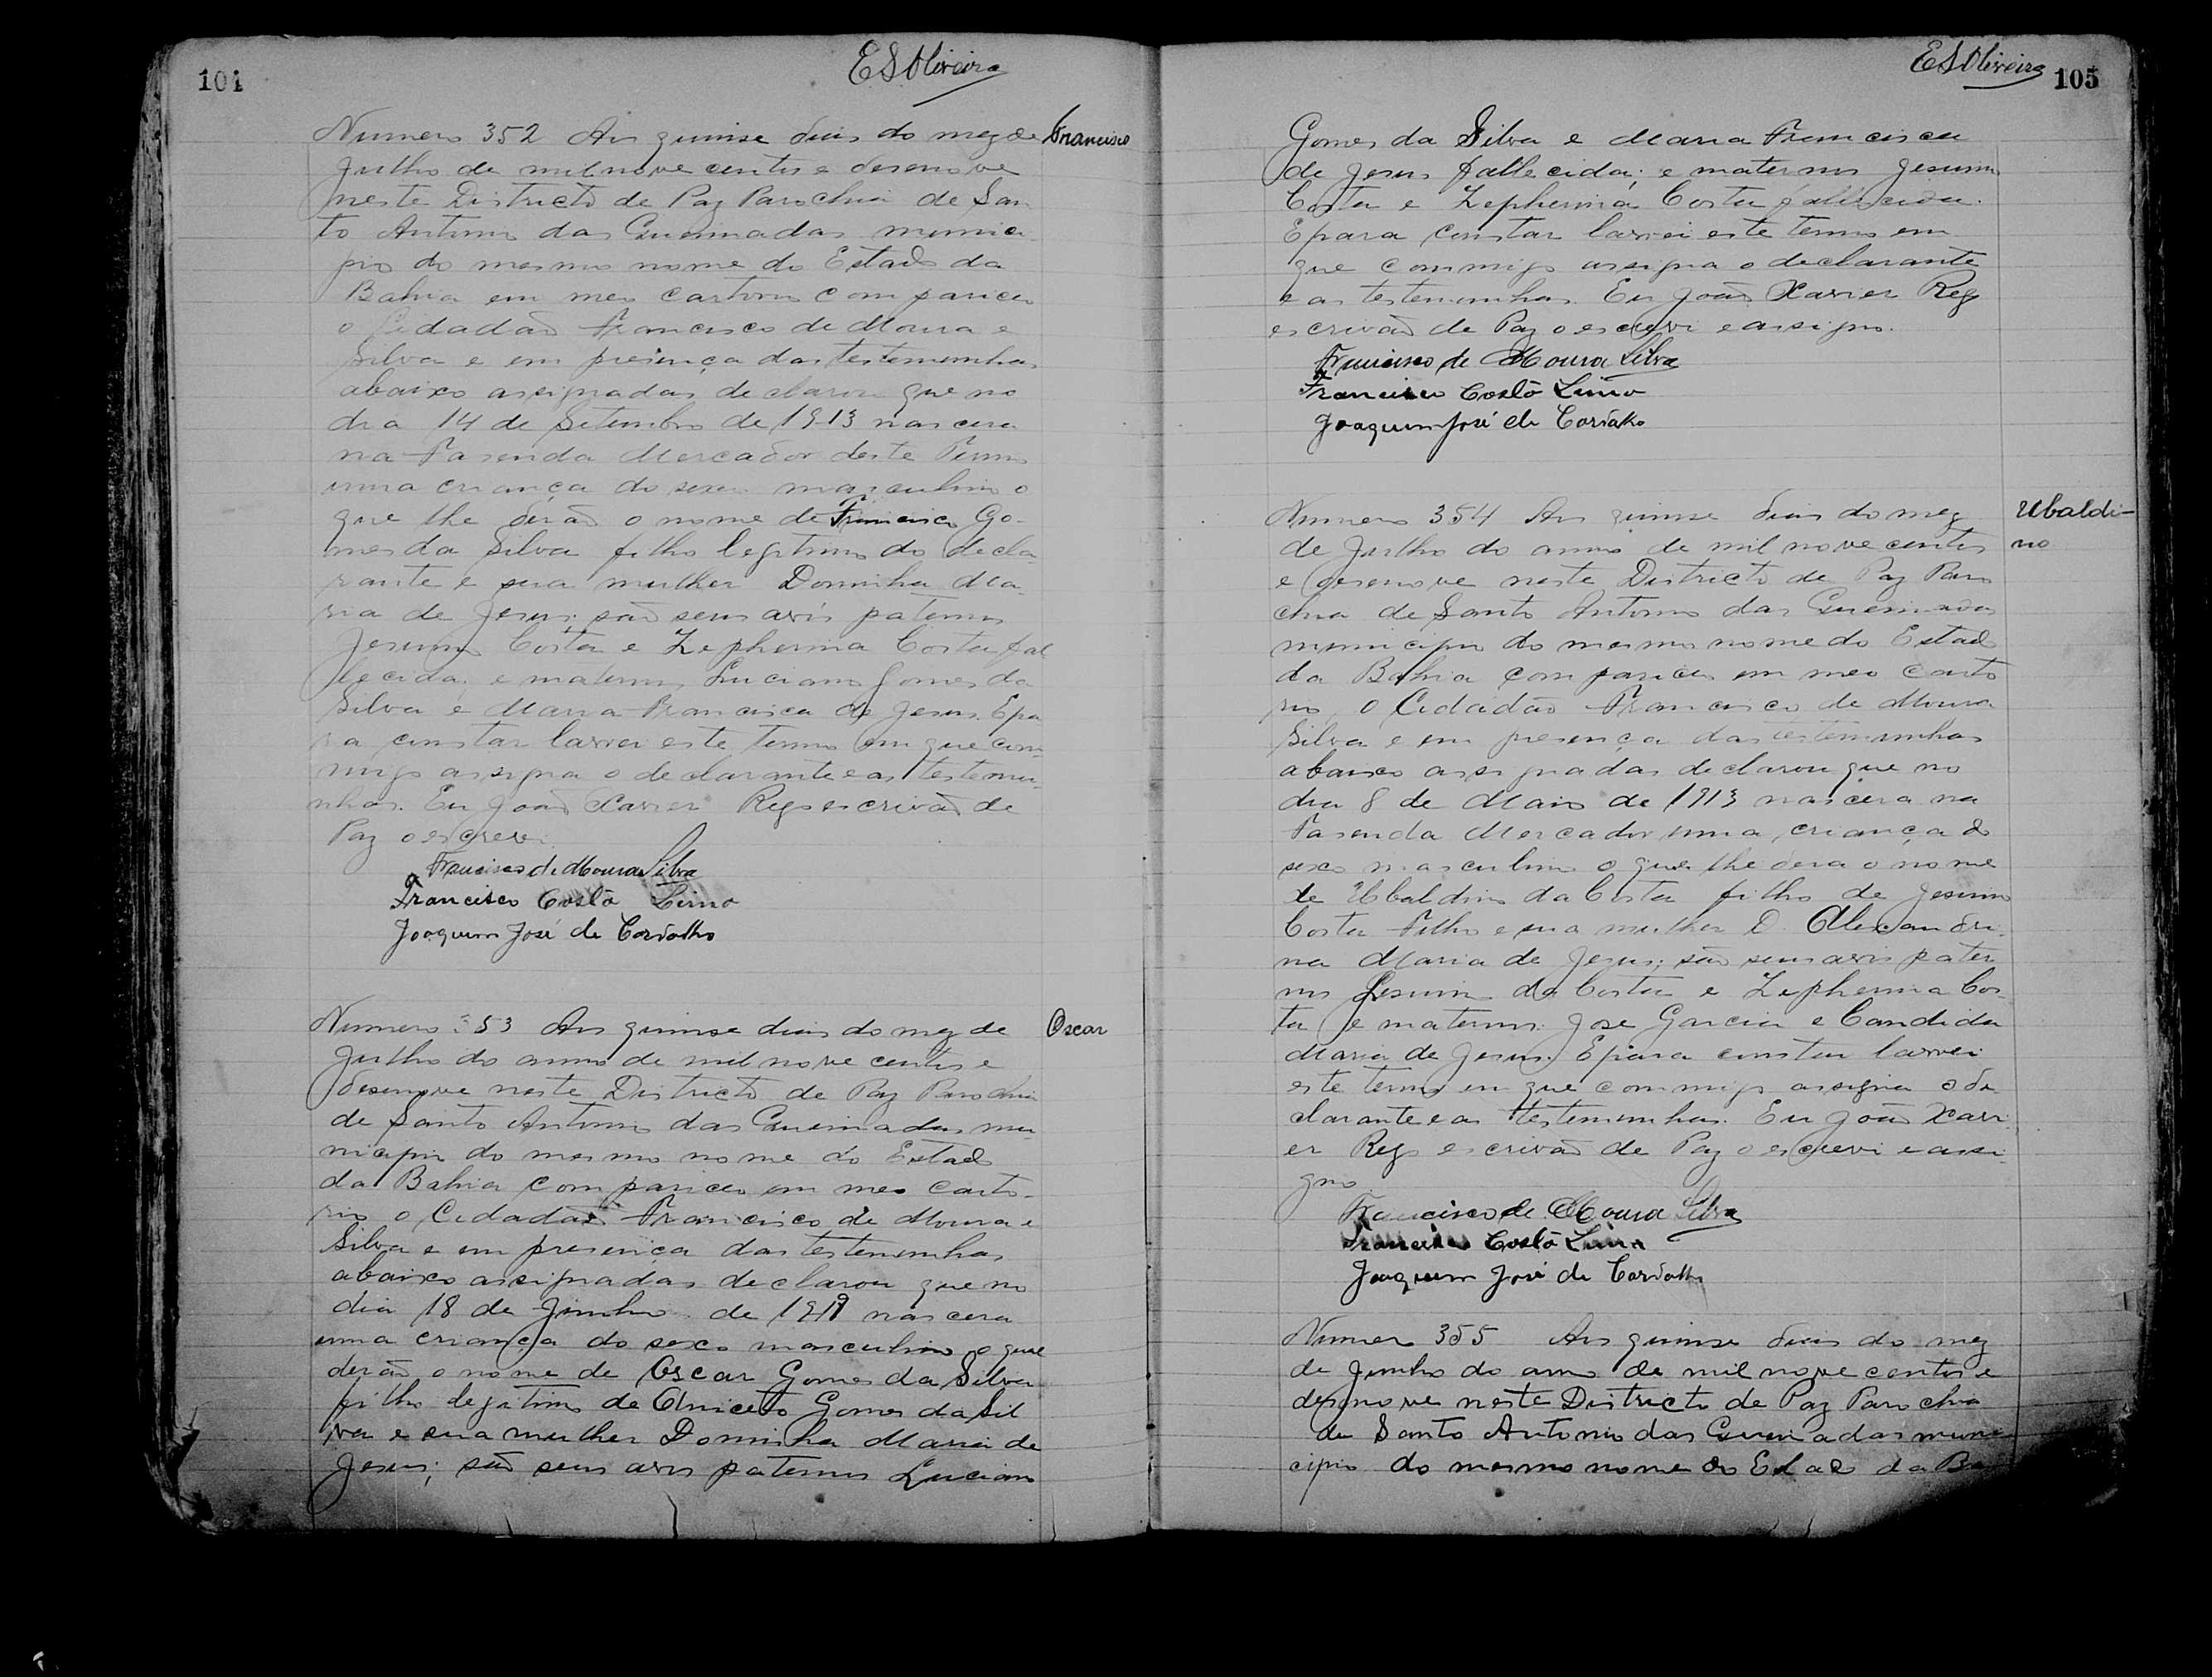 104
ESOliveira
Numero 352 Aos quinse dias do mez de
Francisco
Julho de mil nove centos e desenove
neste Districto de Paz Parochia de San
to Antonio das Queimadas munici
pio do mesmo nome do Estado da
Bahia em meu cartorio compareceu
o Cidadão Francisco de Moura e
Silva e em presença das testemunhas
abaixo assignadas declarou que no
dia 14 de Setembro de 1913 nascera
na Fasenda Mercador deste Termo
uma criança do sexo masculino o
que lhe derão o nome de Francisco Go-
mes da Silva filho legitimo do decla
rante e sua mulher Dominha Ma-
ria de Jesus; são seus avós paternos
Jesuino Costa e Zepherina Costa fal
lecida; e maternos Luciano Gomes da
Silva e Maria Francisca de Jesus. E pa
ra constar lavrei este termo em que com
migo assigna o declarante e as testemu-
nhas. Eu João Xavier Rego escrivão de
Paz o escrevi
Francisco de Moura Silva
Francisco Costa Lino
Joaquim José de Carvalho
Numero 353 Aos quinse dias do mez de
Oscar
Julho do anno de mil nove centos e
desenove neste Districto de Paz Parochia
de Santo Antonio das Queimadas mu-
nicipio do mesmo nome do Estado
da Bahia compareceu em meu carto-
rio o Cidadão Francisco de Moura e
Silva e em presença das testemunhas
abaixo assignadas declarou que no
dia 18 de Junho de 1919 nascera
uma criança do sexo masculino o que
derão o nome de Oscar Gomes da Silva
filho legitimo de Aniceto Gomes da Sil
va e sua mulher Dominha Maria de
Jesus; são seus avos paternos Luciano
ESOliveira
105
Gomes da Silva e Maria Francisca
de Jesus fallecida; e maternos Jesuino
Costa e Zepherina Costa fallecida.
E para constar lavrei este termo em
que commigo assigna o declarante
e as testemunhas. Eu João Xavier Rego
escrivão de Paz o escrevi e assigno.
Francisco de Moura Silva
Francisco Costa Lino
Joaquim José de Carvalho
Numero 354 Aos quinse dias do mez
Ubaldi-
de Julho do anno de mil nove centos
no
e desenove neste Districto de Paz Paro
chia de Santo Antonio das Queimadas
municipio do mesmo nome do Estado
da Bahia compareceu em meu carto
rio, o Cidadão Francisco de Moura
Silva e em presença das testemunhas
abaixo assignadas declarou que no
dia 8 de Maio de 1913 nascera na
Fasenda Mercador uma criança do
sexo masculino o que lhe dera o nome
de Ubaldino da Costa filho de Jesuino
Costa Filho e sua mulher D. Alexandri-
na Maria de Jesus; são seus avos pater
nos Jesuino da Costa e Zepherina Cos-
ta e maternos José Garcia e Candida
Maria de Jesus. E para constar lavrei
este termo em que commigo assigna o de
clarante e as testemunhas. Eu João Xavi
er Rego escrivão de Paz o escrevi e assi-
gno.
Francisco de Moura Silva
Francisco Costa Lino
Joaquim José de Carvalho
Numero 355 Aos quinse dias do mez
de Junho do anno de mil nove centos e
desenove neste Districto de Paz Parochia
de Santo Antonio das Queimadas muni
cipio do mesmo nome do Estado da Ba